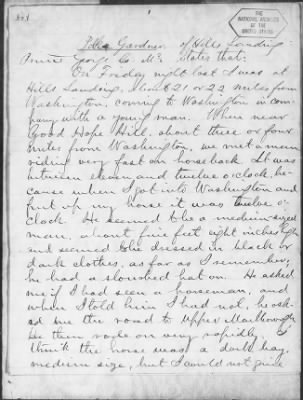 THE
NATIONAL ARCHIVES
OF THE
UNITED STATES
Gardner of Hills Landing
Prince Geo's Co Md. States that:
On Friday night last I was at
Hills Landing, about 21 or 22 miles from
Washington, coming to Washington in com-
pany with a young man. When near
Good Hope Hill, about three or four
miles from Washington, we met a man
riding very fast on horseback. It was
between eleven and twelve o'clock, be-
cause when I got into Washington and
put up my horse it was twelve o'-
clock. He seemed to be a medium-sized
man, about five feet eight inches high
and seemed to be dressed in black or
dark clothes, as far as I remember;
he had a slouched hat on. He asked
me if I had seen a horseman, and
when I told him I had not, he ask-
ed me the road to Upper Marlborough.
He then rode on very rapidly. I
think the horse was a dark bay,
medium size, but I could not give